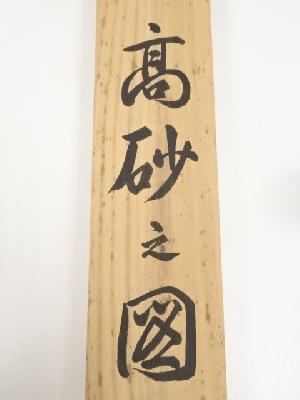 髙砂之図